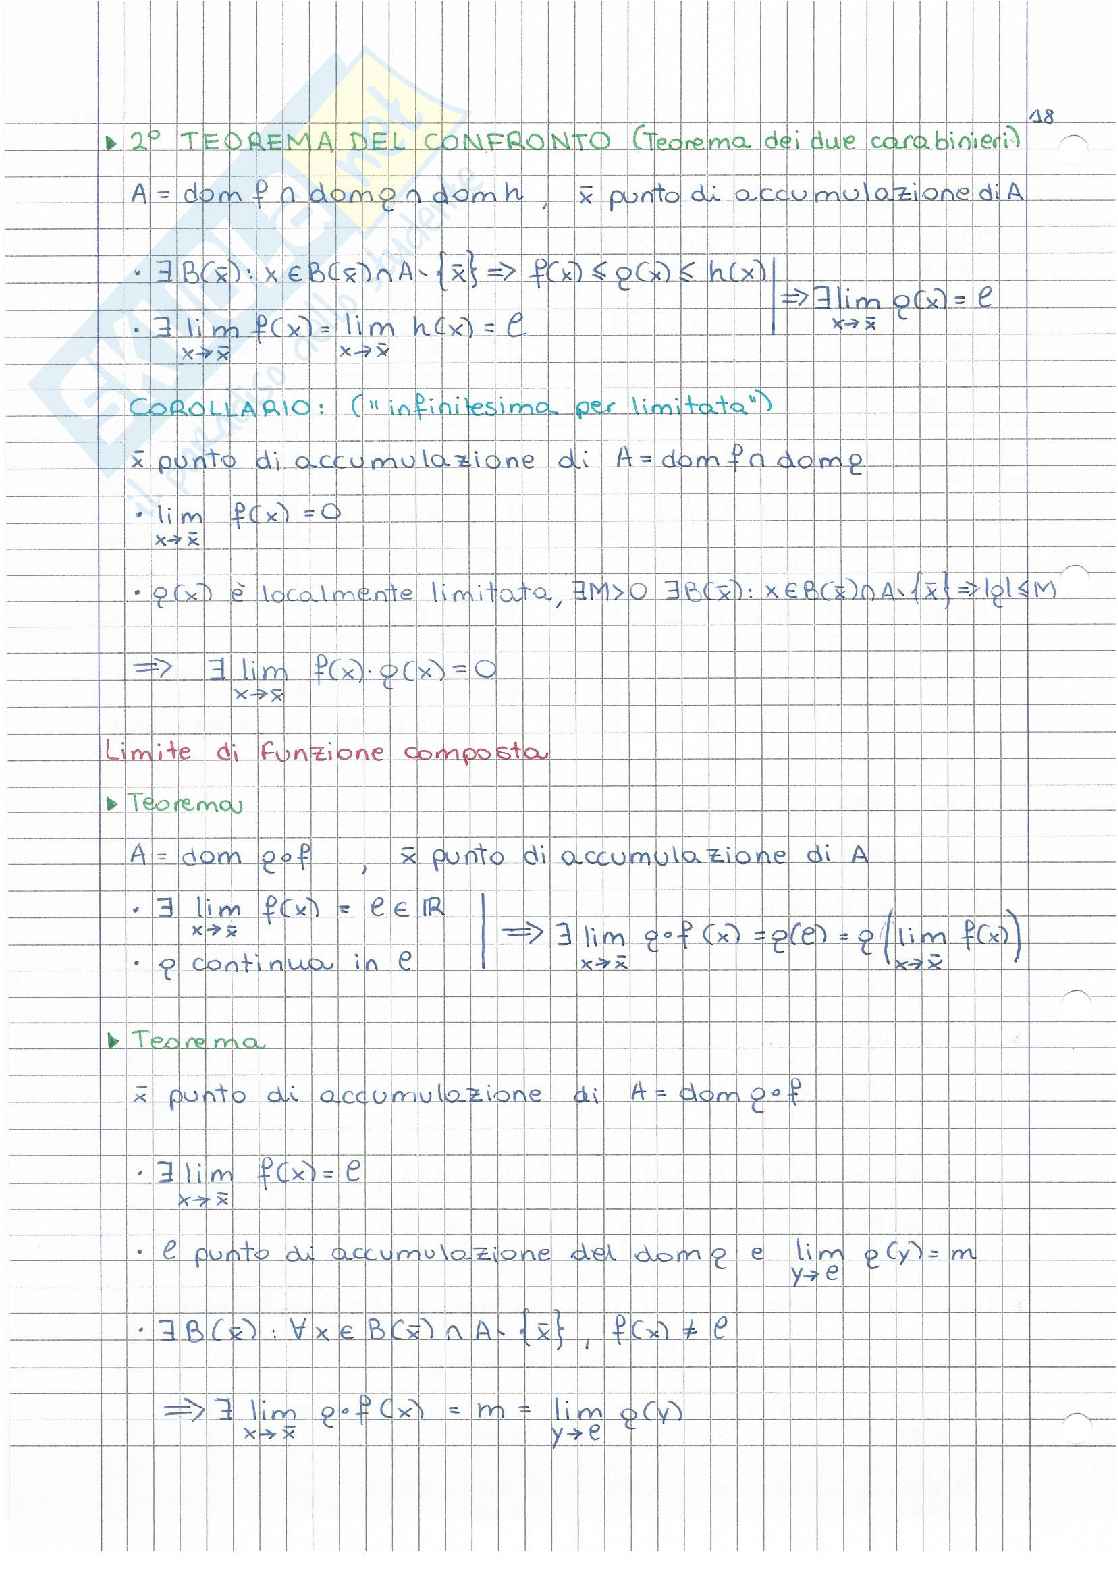 18
▸ 2° TEOREMA DEL CONFRONTO (Teorema dei due carabinieri)
A = dom f ∩ dom g ∩ dom h , x̄ punto di accumulazione di A
· ∃ B(x̄) : x ∈ B(x̄) ∩ A \ {x̄} ⇒ f(x) ≤ g(x) ≤ h(x)
· ∃ lim f(x) = lim h(x) = ℓ
x→x̄ x→x̄
⇒ ∃ lim g(x) = ℓ
x→x̄
COROLLARIO: ("infinitesima per limitata")
x̄ punto di accumulazione di A = dom f ∩ dom g
· lim f(x) = 0
x→x̄
· g(x) è localmente limitata, ∃M>0 ∃B(x̄) : x ∈ B(x̄) ∩ A \ {x̄} ⇒ |g| ≤ M
⇒ ∃ lim f(x) · g(x) = 0
x→x̄
Limite di funzione composta
▸ Teorema
A = dom g∘f , x̄ punto di accumulazione di A
· ∃ lim f(x) = ℓ ∈ ℝ
x→x̄
· g continua in ℓ
⇒ ∃ lim g∘f (x) = g(ℓ) = g(lim f(x))
x→x̄ x→x̄
▸ Teorema
x̄ punto di accumulazione di A = dom g∘f
· ∃ lim f(x) = ℓ
x→x̄
· ℓ punto di accumulazione del dom g e lim g(y) = m
y→ℓ
· ∃ B(x̄) : ∀ x ∈ B(x̄) ∩ A \ {x̄} , f(x) ≠ ℓ
⇒ ∃ lim g∘f (x) = m = lim g(y)
x→x̄ y→ℓ
SKUOLA.net
il paradiso dello studente